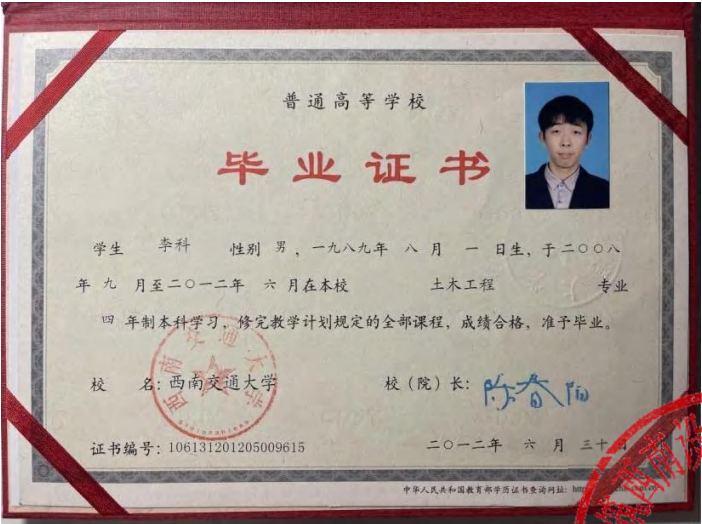 普通高等学校
毕业证书
学生 李科 性别 男，一九八九年 八 月 一 日生，于二〇〇八
年 九 月至二〇一二年 六 月在本校 土木工程 专业
四 年制本科学习，修完教学计划规定的全部课程，成绩合格，准予毕业。
校 名：西南交通大学 校（院）长：
西南交通大学
证书编号：106131201205009615 二〇一二年 六 月 三十
中华人民共和国教育部学历证书查询网址：